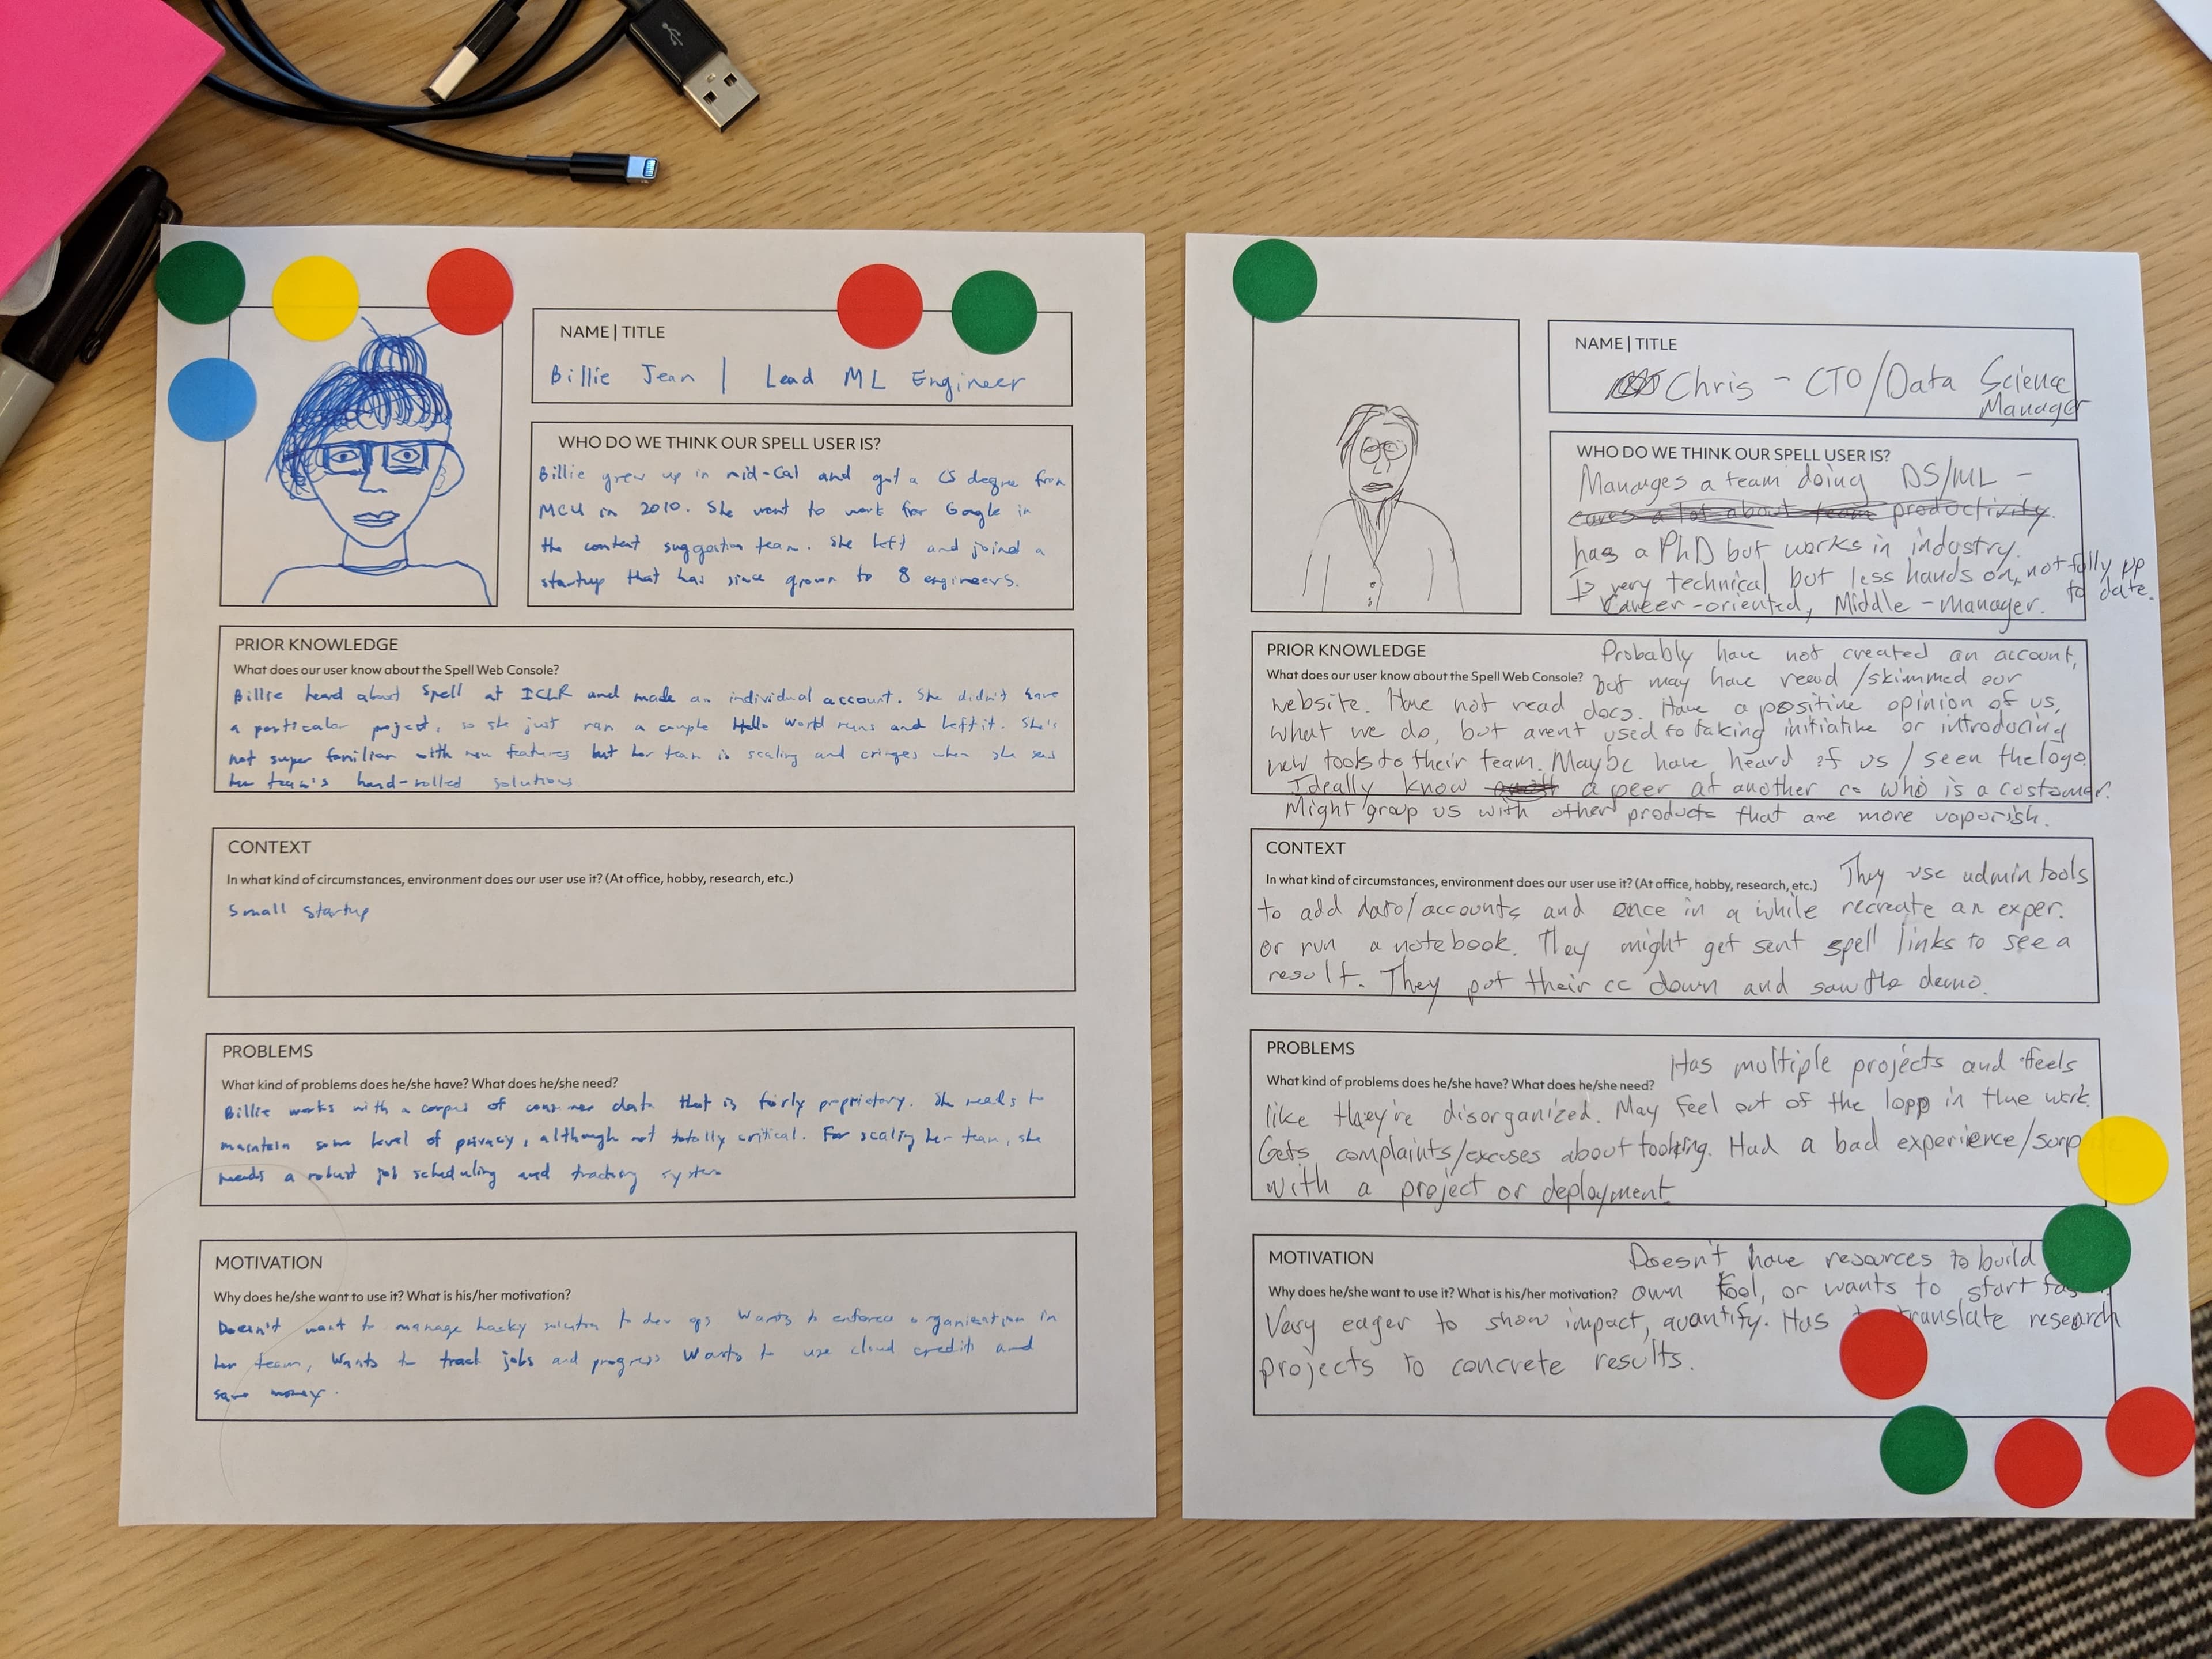 NAME | TITLE
Billie Jean | Lead ML Engineer
WHO DO WE THINK OUR SPELL USER IS?
Billie grew up in mid-Cal and got a CS degree from
MCU in 2010. She went to work for Google in
the content suggestion team. She left and joined a
startup that has since grown to 8 engineers.
PRIOR KNOWLEDGE
What does our user know about the Spell Web Console?
Billie heard about Spell at ICLR and made an individual account. She didn't have
a particular project, so she just ran a couple Hello World runs and left it. She's
not super familiar with new features but her team is scaling and cringes when she sees
her team's hand-rolled solutions
CONTEXT
In what kind of circumstances, environment does our user use it? (At office, hobby, research, etc.)
Small startup
PROBLEMS
What kind of problems does he/she have? What does he/she need?
Billie works with a corpus of consumer data that is fairly proprietary. She needs to
maintain some level of privacy, although not totally critical. For scaling her team, she
needs a robust job scheduling and tracking system
MOTIVATION
Why does he/she want to use it? What is his/her motivation?
Doesn't want to manage hacky solution to dev ops Wants to enforce organization in
her team, Wants to track jobs and progress Wants to use cloud credits and
save money.
NAME | TITLE
Chris - CTO/Data Science
Manager
WHO DO WE THINK OUR SPELL USER IS?
Manages a team doing DS/ML -
cares a lot about team productivity.
has a PhD but works in industry.
Is very technical but less hands on, not fully up
to date.
Career-oriented, Middle-manager.
PRIOR KNOWLEDGE
Probably have not created an account,
What does our user know about the Spell Web Console?
but may have read/skimmed our
website. Have not read docs. Have a positive opinion of us,
what we do, but arent used to taking initiative or introducing
new tools to their team. Maybe have heard of us / seen the logo.
Ideally know a peer at another co who is a costomer.
Might group us with other products that are more vaporish.
CONTEXT
In what kind of circumstances, environment does our user use it? (At office, hobby, research, etc.)
They use admin tools
to add data/accounts and once in a while recreate an exper.
or run a notebook. They might get sent spell links to see a
result. They put their cc down and saw the demo.
PROBLEMS
What kind of problems does he/she have? What does he/she need?
Has multiple projects and feels
like they're disorganized. May feel out of the loop in the work.
Gets complaints/excuses about tooling. Had a bad experience/surp
with a project or deployment
MOTIVATION
Doesn't have resources to build
Why does he/she want to use it? What is his/her motivation?
own tool, or wants to start
Very eager to show impact, quantify. Has translate research
projects to concrete results.